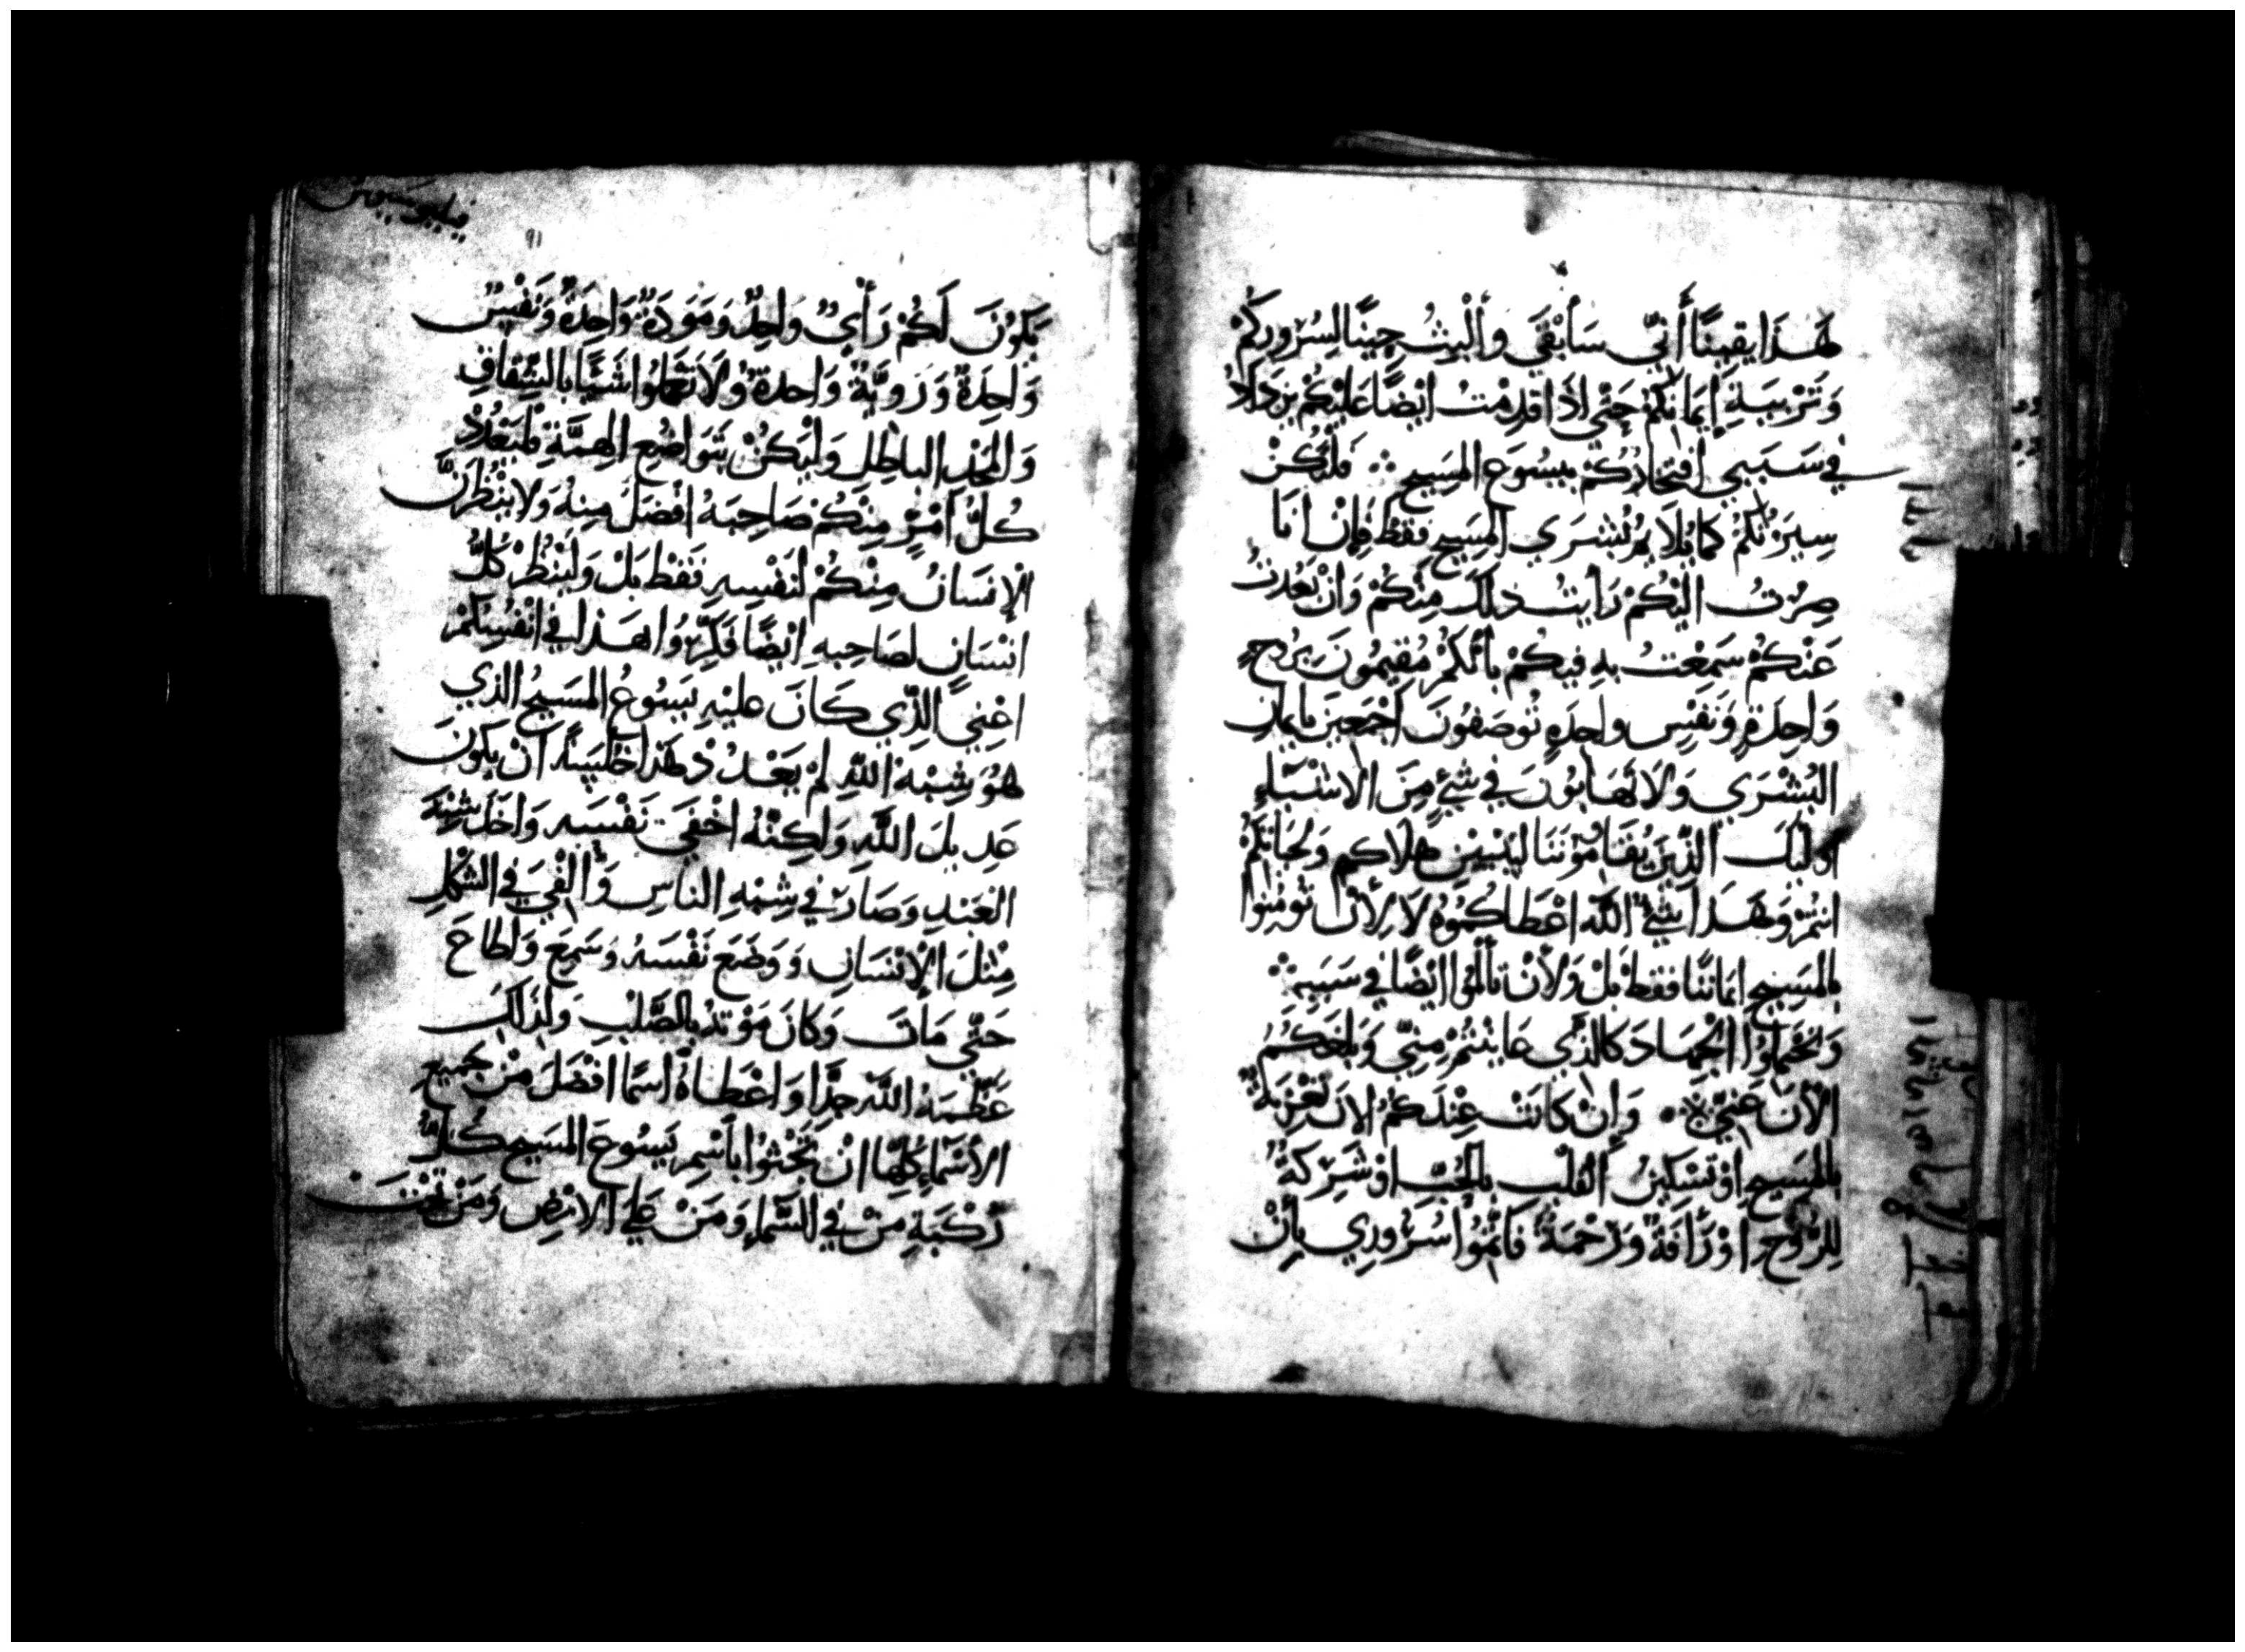 هَذَا يقينًا أَنّي سَأبْقَي وأَلْبثُ حِينًا لسُرُوركُمْ
وَتَرْبيَةِ إيمَانكُمْ حَتَّي اذَا قدِمْتُ ايْضًا عَليْكُم يزدَادُ
في سَبَبي افتخارُكُمْ بيسُوعَ المسَيح فلْتكُنْ
سِيرَتُكُمْ كمَا يُلَايمُ بُشْرَي المسَيح فقطْ فَإنْ انَا
صِرْتُ اليْكُمْ رَأيتُ ذلكَ مِنْكُمْ وَانْ بَعُدتُ
عَنْكُمْ سَمِعْتُ بهِ فيكُمْ بأنّكُمْ مُقيمُونَ برُوحٍ
وَاحِدَةٍ وَنَفْسٍ واحِدَةٍ تُوصَفُونَ اجْمَعين بإيمان
البُشْرَي وَلَا تَهَابُونَ في شَيْءٍ مِنَ الاشْيَاءِ
أُولئكَ الذّينَ يُقَاوِمُونَنَا ليَتبيّن هلَاكهم وَنجَاتكُمْ
انتُمْ وَهَذَا شَيْءٌ اللّه اعْطَاكُمُوهُ لَا لأنْ تُومنُوا
بالمسَيح ايمَانًا فقطْ بَلْ وَلأنْ تَألمُوا ايْضًا في سَبَبهِ
وَتحْتَملُوا الجْهَادَ كالذي عَاينتُمْ مِنّي وَبلغَكُمُ
الآنَ عَنّي وَإنْ كانَتْ عِنْدَكُمُ الانَ تعْزيَةٌ
بالمسَيح اوْ تَسْكينُ القلْب بالحُبّ اوْ شَرِكةٌ
للرُّوح اوْ رَأفَةٌ وَرَحْمَةٌ فَاتمُّوا سُرُوري بأنْ
فيلبوسيوس
91
يَكُونَ لَكُمْ رَأْيٌ واحِدٌ وَمَوَدَةٌ وَاحِدَةٌ وَنَفْسٌ
وَاحِدَةٌ وَرَويَّةٌ وَاحدةٌ وَلَا تَعْمَلُوا شَيًّا بالشِّقاقِ
وَالمَجْدِ الباطِلِ وَلْيَكُنْ بتَوَاضُعِ الهمَّةِ ليَعْدُدْ
كُلُّ امْرٍ مِنْكُمْ صَاحِبَهُ افْضَلَ مِنهُ وَلا ينْظُرَنَّ
الإنسَانُ مِنْكُمْ لنَفْسِهِ فَقَطْ بَلْ وَليَنْظُرْ كُلُّ
انْسَانٍ لصَاحِبهِ ايْضًا فَكِّرُوا هَذا في انْفُسِكُمْ
اعْني الّذِي كَانَ عليْهِ يَسُوعُ المسَيحُ الذي
هُوَ شِبْهُ اللّهِ لمْ يَعْدُدْ هَذا خُلْسَةً انْ يكُونَ
عَدِيلَ اللَّهِ وَلكِنَّهُ اخْفَي نَفْسَه وَاخَذَ شِبْهَ
العَبْدِ وَصَارَ في شِبْهِ الناسِ وَأُلْفِيَ في الشكْلِ
مِثْلَ الإنْسَانِ وَوَضَعَ نَفْسَهُ وَسَمِعَ وَاطَاعَ
حَتّي مَاتَ وَكانَ مَوْتهُ بالصَّلْبِ وَلذَلكَ
عَظّمَهُ اللّه جِدًّا وَاعْطَاهُ اسمًا افْضَلَ مِنْ جميعِ
الأسْمَاءِ كُلّهَا انْ تَجْثُوا باسْمِ يَسُوعَ المسَيح كُلُّ
رُكْبَةٍ مِنْ في السَّماءِ وَمَنْ عَلي الارْضِ وَمَنْ تَحْتَ